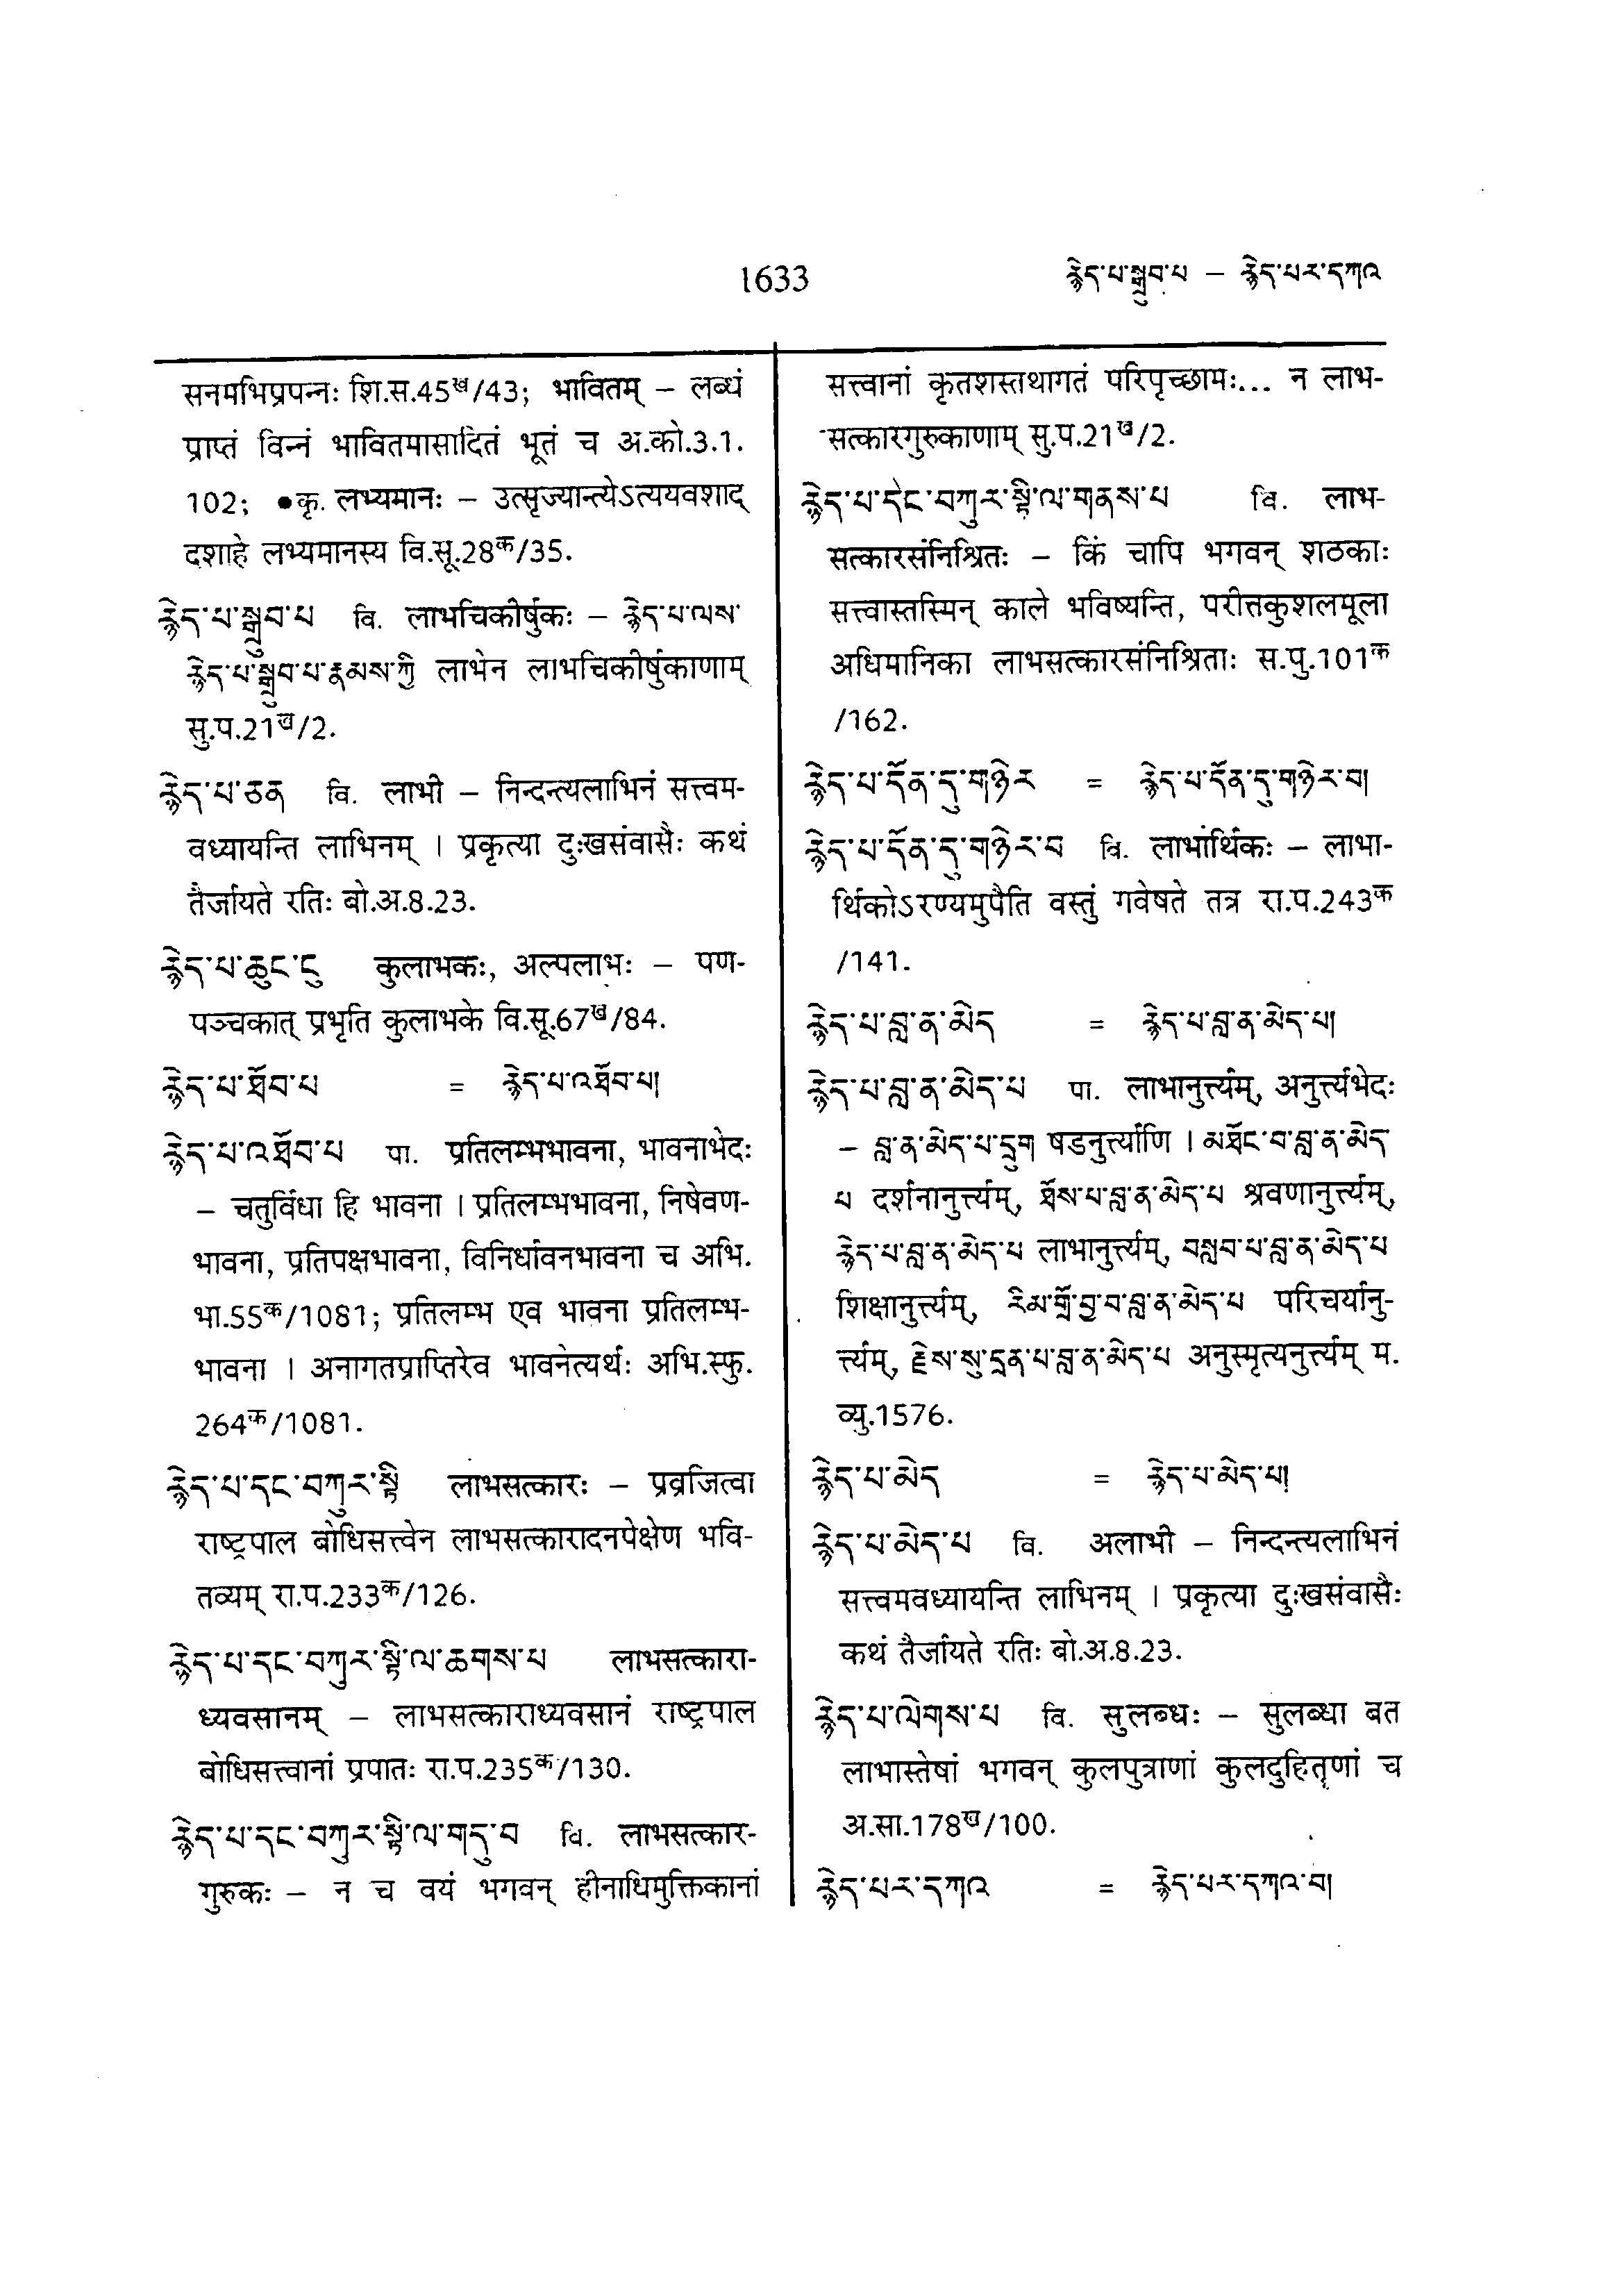 1633
རྙེད་པ་སྒྲུབ་པ – རྙེད་པར་དཀའ
सनमभिप्रपन्नः शि.स.45ख/43; भावितम् – लब्धं
प्राप्तं विन्नं भावितमासादितं भूतं च अ.को.3.1.
102; ●कृ. लभ्यमानः – उत्सृज्यान्त्येऽत्ययवशाद्
दशाहे लभ्यमानस्य वि.सू.28क/35.
རྙེད་པ་སྒྲུབ་པ वि. लाभचिकीर्षुकः – རྙེད་པ་ལས་
རྙེད་པ་སྒྲུབ་པ་རྣམས་ཀྱི लाभेन लाभचिकीर्षुकाणाम्
सु.प.21ख/2.
རྙེད་པ་ཅན वि. लाभी – निन्दन्त्यलाभिनं सत्त्वम-
वध्यायन्ति लाभिनम् । प्रकृत्या दुःखसंवासैः कथं
तैर्जायते रतिः बो.अ.8.23.
རྙེད་པ་ཆུང་ངུ कुलाभकः, अल्पलाभः – पण-
पञ्चकात् प्रभृति कुलाभके वि.सू.67ख/84.
རྙེད་པ་ཐོབ་པ = རྙེད་པ་འཐོབ་པ།
རྙེད་པ་འཐོབ་པ पा. प्रतिलम्भभावना, भावनाभेदः
– चतुर्विधा हि भावना । प्रतिलम्भभावना, निषेवण-
भावना, प्रतिपक्षभावना, विनिर्धावनभावना च अभि.
भा.55क/1081; प्रतिलम्भ एव भावना प्रतिलम्भ-
भावना । अनागतप्राप्तिरेव भावनेत्यर्थः अभि.स्फु.
264क/1081.
རྙེད་པ་དང་བཀུར་སྟི लाभसत्कारः – प्रव्रजित्वा
राष्ट्रपाल बोधिसत्त्वेन लाभसत्कारादनपेक्षेण भवि-
तव्यम् रा.प.233क/126.
རྙེད་པ་དང་བཀུར་སྟི་ལ་ཆགས་པ लाभसत्कारा-
ध्यवसानम् – लाभसत्काराध्यवसानं राष्ट्रपाल
बोधिसत्त्वानां प्रपातः रा.प.235क/130.
རྙེད་པ་དང་བཀུར་སྟི་ལ་གདུ་བ वि. लाभसत्कार-
गुरुकः – न च वयं भगवन् हीनाधिमुक्तिकानां
सत्त्वानां कृतशस्तथागतं परिपृच्छामः... न लाभ-
सत्कारगुरुकाणाम् सु.प.21ख/2.
རྙེད་པ་དེང་བཀུར་སྟི་ལ་གནས་པ वि. लाभ-
सत्कारसंनिश्रितः – किं चापि भगवन् शठकाः
सत्त्वास्तस्मिन् काले भविष्यन्ति, परीत्तकुशलमूला
अधिमानिका लाभसत्कारसंनिश्रिताः स.पु.101क
/162.
རྙེད་པ་དོན་དུ་གཉེར = རྙེད་པ་དོན་དུ་གཉེར་བ།
རྙེད་པ་དོན་དུ་གཉེར་བ वि. लाभार्थिकः – लाभा-
र्थिकोऽरण्यमुपैति वस्तुं गवेषते तत्र रा.प.243क
/141.
རྙེད་པ་བླ་ན་མེད = རྙེད་པ་བླ་ན་མེད་པ།
རྙེད་པ་བླ་ན་མེད་པ पा. लाभानुत्त्र्यम्, अनुत्त्र्यभेदः
– བླ་ན་མེད་པ་དྲུག षडनुत्त्र्याणि । མཐོང་བ་བླ་ན་མེད
པ दर्शनानुत्त्र्यम्, ཐོས་པ་བླ་ན་མེད་པ श्रवणानुत्त्र्यम्,
རྙེད་པ་བླ་ན་མེད་པ लाभानुत्त्र्यम्, བསླབ་པ་བླ་ན་མེད་པ
शिक्षानुत्त्र्यम्, རིམ་གྲོ་བྱ་བ་བླ་ན་མེད་པ परिचर्यानु-
त्त्र्यम्, རྗེས་སུ་དྲན་པ་བླ་ན་མེད་པ अनुस्मृत्यनुत्त्र्यम् म.
व्यु.1576.
རྙེད་པ་མེད = རྙེད་པ་མེད་པ།
རྙེད་པ་མེད་པ वि. अलाभी – निन्दन्त्यलाभिनं
सत्त्वमवध्यायन्ति लाभिनम् । प्रकृत्या दुःखसंवासैः
कथं तैर्जायते रतिः बो.अ.8.23.
རྙེད་པ་ལེགས་པ वि. सुलब्धः – सुलब्धा बत
लाभास्तेषां भगवन् कुलपुत्राणां कुलदुहितॄणां च
अ.सा.178ख/100.
རྙེད་པར་དཀའ = རྙེད་པར་དཀའ་བ།